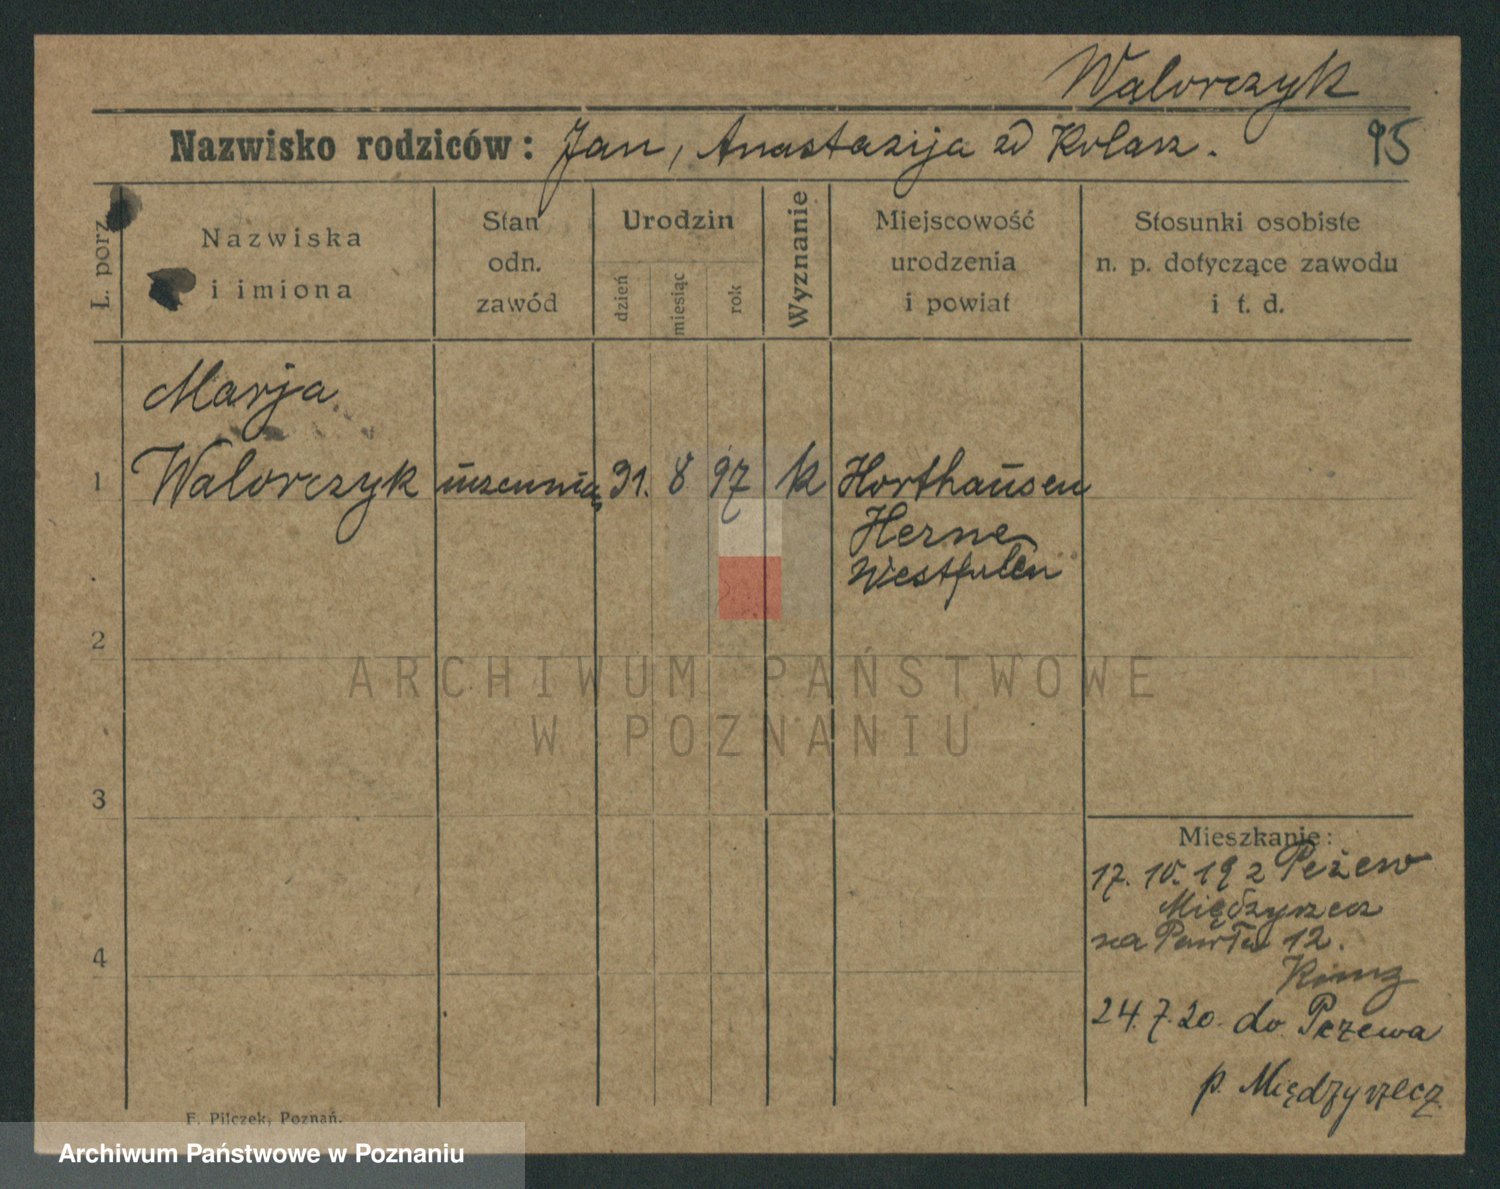 Walorczyk
Nazwisko rodziców: Jan, Anastazija zd Kolasz.
95
L. porz.
Nazwiska
i imiona
Stan
odn.
zawód
Urodzin
dzień
miesiąc
rok
Wyznanie
Miejscowość
urodzenia
i powiat
Stosunki osobiste
n. p. dotyczące zawodu
i t. d.
Marja
1 Walorczyk uczennica 31. 8 97 k Horthausen
Herne
Westfalen
2
3
4
Mieszkanie:
17. 10. 19 z Peżew
Międzyrzecz
na Pawła 12.
24. 7. 20. do Pezewa
p. Międzyrzecz
F. Pilczek, Poznań.
ARCHIWUM PAŃSTWOWE
W POZNANIU
Archiwum Państwowe w Poznaniu